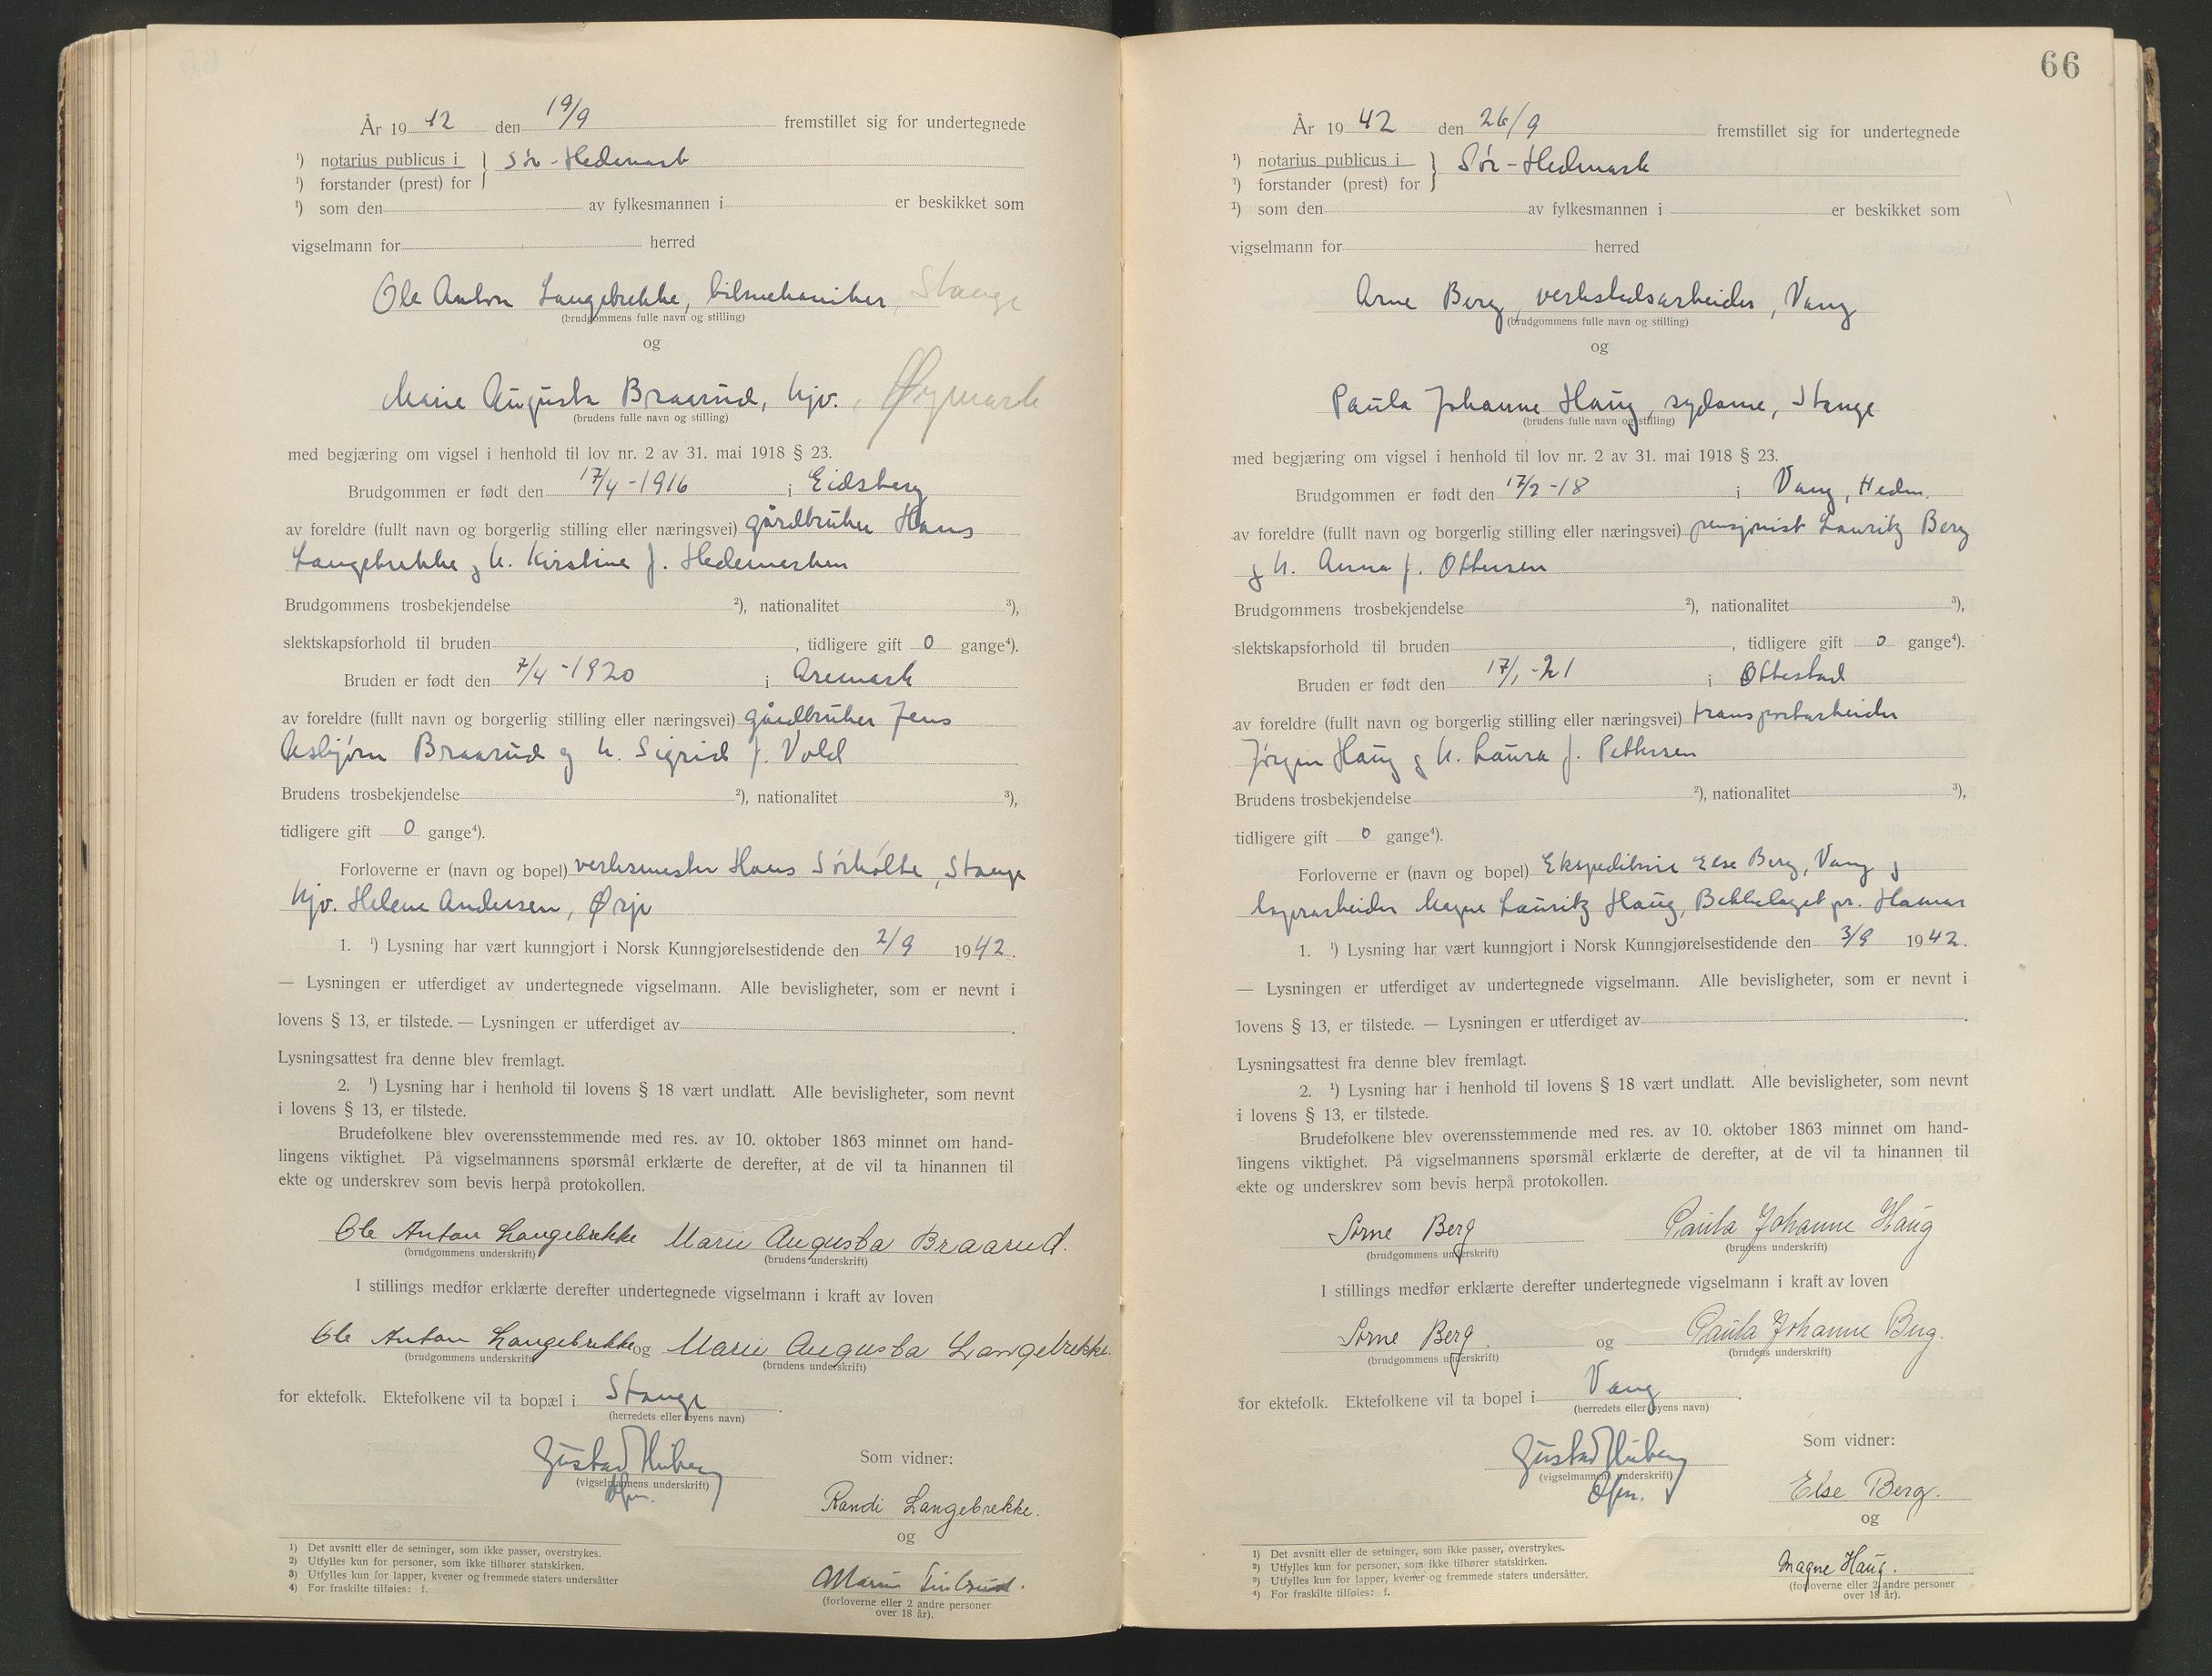 År 19 42 den 19/9 fremstillet sig for undertegnede
¹) notarius publicus i } Sør-Hedemark
¹) forstander (prest) for
¹) som den av fylkesmannen i er beskikket som
vigselmann for herred
Ole Anton Langebrekke, bilmekaniker, Stange
(brudgommens fulle navn og stilling)
og
Marie Augusta Braarud, hjv., Øymark
(brudens fulle navn og stilling)
med begjæring om vigsel i henhold til lov nr. 2 av 31. mai 1918 § 23.
Brudgommen er født den 17/4-1916 i Eidsberg
av foreldre (fullt navn og borgerlig stilling eller næringsvei) gårdbruker Hans
Langebrekke og h. Kirstine f. Hedemarken
Brudgommens trosbekjendelse ²), nationalitet ³),
slektskapsforhold til bruden , tidligere gift 0 gange⁴).
Bruden er født den 7/4-1920 i Aremark
av foreldre (fullt navn og borgerlig stilling eller næringsvei) gårdbruker Jens
Asbjørn Braarud og h. Sigrid f. Vold
Brudens trosbekjendelse ²), nationalitet ³),
tidligere gift 0 gange⁴).
Forloverne er (navn og bopel) verksmester Hans Sørholte, Stange
hjv. Helene Andersen, Ørje
1. ¹) Lysning har vært kunngjort i Norsk Kunngjørelsestidende den 2/9 1942.
— Lysningen er utferdiget av undertegnede vigselmann. Alle bevisligheter, som er nevnt i
lovens § 13, er tilstede. — Lysningen er utferdiget av .
Lysningsattest fra denne blev fremlagt.
2. ¹) Lysning har i henhold til lovens § 18 vært undlatt. Alle bevisligheter, som nevnt
i lovens § 13, er tilstede.
Brudefolkene blev overensstemmende med res. av 10. oktober 1863 minnet om hand-
lingens viktighet. På vigselmannens spørsmål erklærte de derefter, at de vil ta hinannen til
ekte og underskrev som bevis herpå protokollen.
Ole Anton Langebrekke Marie Augusta Braarud.
(brudgommens underskrift) (brudens underskrift)
I stillings medfør erklærte derefter undertegnede vigselmann i kraft av loven
Ole Anton Langebrekke og Marie Augusta Langebrekke.
(brudgommens underskrift) (brudens underskrift)
for ektefolk. Ektefolkene vil ta bopæl i Stange .
(herredets eller byens navn)
Som vidner:
(vigselmannens underskrift)
Randi Langebrekke.
og
(forloverne eller 2 andre personer
over 18 år).
1) Det avsnitt eller de setninger, som ikke passer, overstrykes.
2) Utfylles kun for personer, som ikke tilhører statskirken.
3) Utfylles kun for lapper, kvener og fremmede staters undersåtter
4) For fraskilte tilføies: f.
66
År 19 42 den 26/9 fremstillet sig for undertegnede
¹) notarius publicus i } Sør-Hedmark
¹) forstander (prest) for
¹) som den av fylkesmannen i er beskikket som
vigselmann for herred
Arne Berg, verkstedsarbeider, Vang
(brudgommens fulle navn og stilling)
og
Paula Johanne Haug, sydame, Stange
(brudens fulle navn og stilling)
med begjæring om vigsel i henhold til lov nr. 2 av 31. mai 1918 § 23.
Brudgommen er født den 17/2-18 i Vang, Hedm.
av foreldre (fullt navn og borgerlig stilling eller næringsvei) pensjonist Lauritz Berg
og h. Anna f. Ottersen
Brudgommens trosbekjendelse ²), nationalitet ³),
slektskapsforhold til bruden , tidligere gift 0 gange⁴).
Bruden er født den 17/1-21 i Ottestad
av foreldre (fullt navn og borgerlig stilling eller næringsvei) transportarbeider
Jørgen Haug og h. Laura f. Pettersen
Brudens trosbekjendelse ²), nationalitet ³),
tidligere gift 0 gange⁴).
Forloverne er (navn og bopel) Ekspeditrise Else Berg, Vang og
lagerarbeider Magne Lauritz Haug, Bekkelaget pr. Hamar
1. ¹) Lysning har vært kunngjort i Norsk Kunngjørelsestidende den 3/9 1942.
— Lysningen er utferdiget av undertegnede vigselmann. Alle bevisligheter, som er nevnt i
lovens § 13, er tilstede. — Lysningen er utferdiget av .
Lysningsattest fra denne blev fremlagt.
2. ¹) Lysning har i henhold til lovens § 18 vært undlatt. Alle bevisligheter, som nevnt
i lovens § 13, er tilstede.
Brudefolkene blev overensstemmende med res. av 10. oktober 1863 minnet om hand-
lingens viktighet. På vigselmannens spørsmål erklærte de derefter, at de vil ta hinannen til
ekte og underskrev som bevis herpå protokollen.
Arne Berg Paula Johanne Haug
(brudgommens underskrift) (brudens underskrift)
I stillings medfør erklærte derefter undertegnede vigselmann i kraft av loven
Arne Berg. og Paula Johanne Berg.
(brudgommens underskrift) (brudens underskrift)
for ektefolk. Ektefolkene vil ta bopel i Vang .
(herredets eller byens navn)
Som vidner:
(vigselmannens underskrift)
Else Berg.
og
Magne Haug.
(forloverne eller 2 andre personer
over 18 år).
1) Det avsnitt eller de setninger, som ikke passer, overstrykes.
2) Utfylles kun for personer, som ikke tilhører statskirken.
3) Utfylles kun for lapper, kvener og fremmede staters undersåtter.
4) For fraskilte tilføies: f.